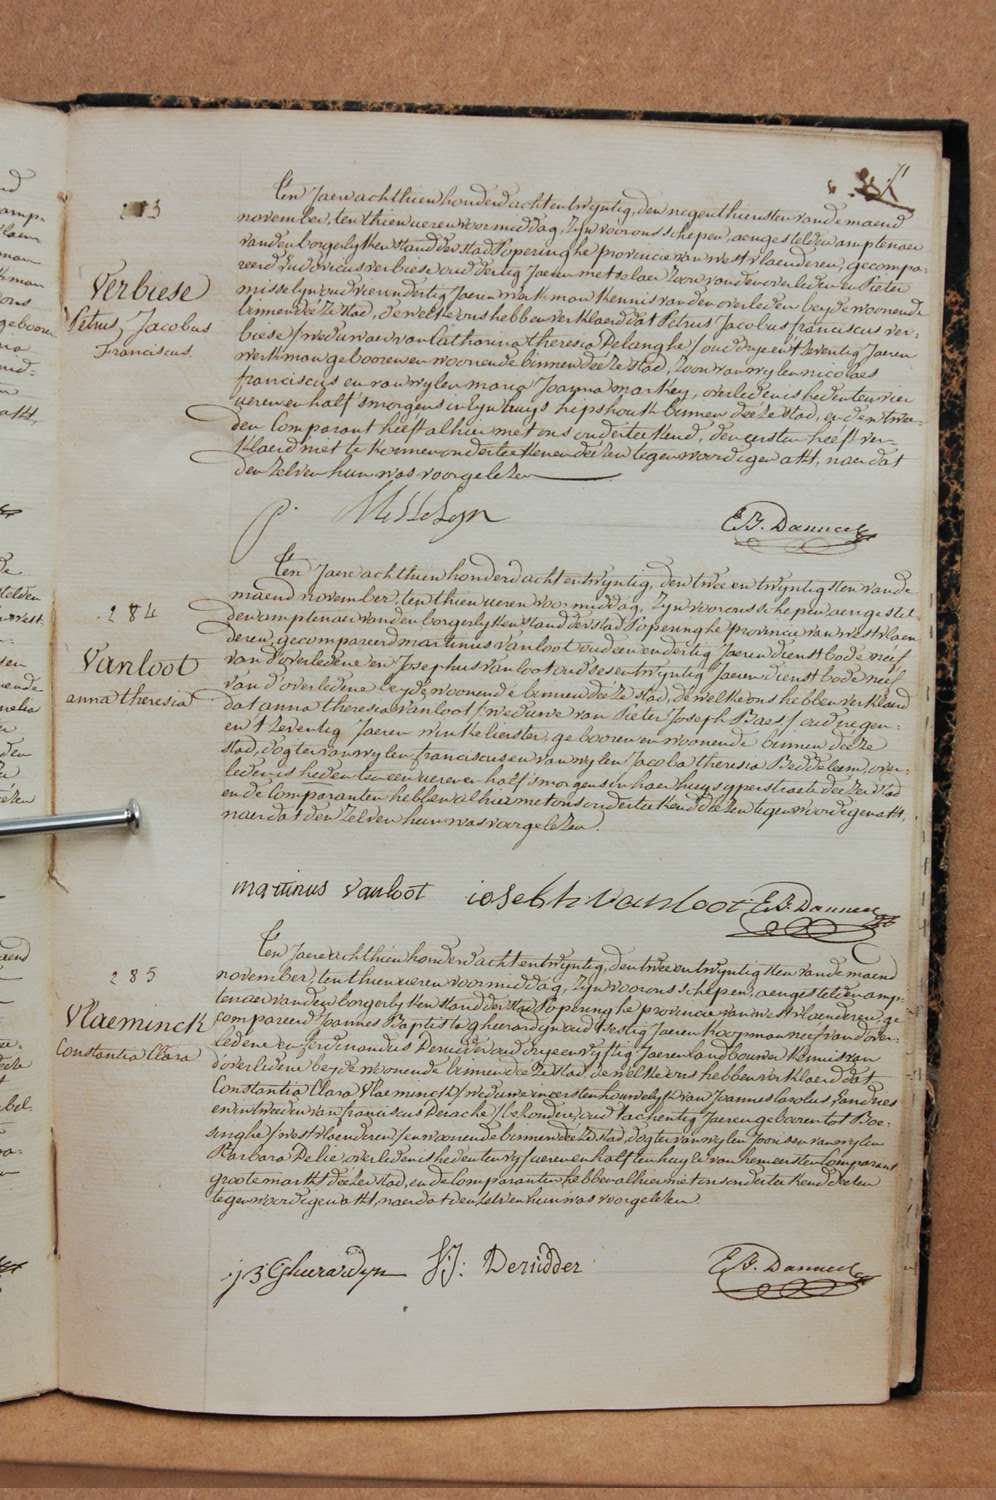 71
283
Verbiese
Petrus Jacobus
Franciscus
Ten Jaere achthien honderd acht en twyntig, den negenthiensten van de maend
november, ten thien ueren voormiddag, Zyn voor ons schepen, aengestelden amptenaer
van den borgerlyken stand der stad Poperinghe provincie van westvlaenderen, gecompa-
reerd Ludovicus verbiese oud dertig Jaeren metselaer Zoon van den overleden en Pieter
misselyn oud vier en dertig Jaeren werkman kennis van den overleden beyde woonende
binnen déeze stad, de welke ons hebben verklaerd dat Petrus Jacobus franciscus ver-
biese / weduwaer van Catharina theresia Delanghe / oud drye en t'zeventig Jaeren
werkman gebooren en woonende binnen déeze stad, Zoon van wylen nicolaes
franciscus en van wylen maria Joanna markey, overleden is heden ten vier
ueren en half s'morgens in Zyn huys hipshoutk binnen déeze stad, en den twee-
den Comparant heeft alhier met ons onderteekend, den eersten heeft ver-
klaerd niet te konnen onderteekenen déezen tegenwoordigen akt, naer dat
den Zelven hun was voorgelezen
P. Misselyn
E.B. Danneel
284
Vanloot
anna theresia
Ten Jaere achthien honderd acht en twyntig, den twee en twyntigsten van de
maend november, ten thien ueren voormiddag, Zyn voor ons schepen aengestel-
den amptenaer van den borgerlyken stand der stad Poperinghe provincie van westvlaen-
deren, gecompareerd martinus vanloot oud een en dertig Jaeren dienstbode néef
van d'overledene en Josephus vanloot oud ses en twyntig Jaeren dienstbode néef
van d'overledene beyde woonende binnen déeze stad, de welke ons hebben verklaerd
dat anna theresia vanloot / weduwe van Pieter Joseph Baes / oud negen-
en t'zeventig Jaeren winkelierster, gebooren en woonende binnen déeze
stad, dogter van wylen franciscus en van wylen Jacoba theresia Beddeleem, over-
leden is heden ten een ueren en half s'morgens in haer huys yperstraete déeze stad
en de Comparanten hebben alhier met ons onderteekend déezen tegenwoordigen akt,
naer dat den Zelven hun was voorgelezen.
martinus vanloot
ioseph vanloot
E.B. Danneel
285
Vlaeminck
Constantia Clara
Ten Jaere achthien honderd acht en twyntig, den twee en twyntigsten van de maend
november, ten thien ueren voormiddag, Zyn voor ons schepen, aengestelden amp-
tenaer van den borgerlyken stand der stad Poperinghe provincie van westvlaenderen, ge-
compareerd Joannes Baptiste gheerardyn oud sestig Jaeren koopman néef van d'over-
ledene en ferdinandus Deruder oud drye en vyftig Jaeren landbouwer kennis van
d'overledene beyde woonende binnen déeze stad de welke ons hebben verklaerd dat
Constantia Clara Vlaeminck / weduwe in eersten houwelyk van Joannes Carolus Landries
en in tweeden van franciscus Derache / behondere, oud tachentig Jaeren gebooren tot Boe-
singhe / westvlaenderen / en woonende binnen déeze stad, dogter van wylen Joonsen van wylen
Barbara Delie, overleden is heden ten vyf ueren en half ten huyze van hem eersten Comparant
groote markt déeze stad, en de Comparanten hebben alhier met ons onderteekend déezen
tegenwoordigen akt, naer dat den zelven hun was voorgelezen
j B Gheerardyn
F.J. Deridder
E.B. Danneel